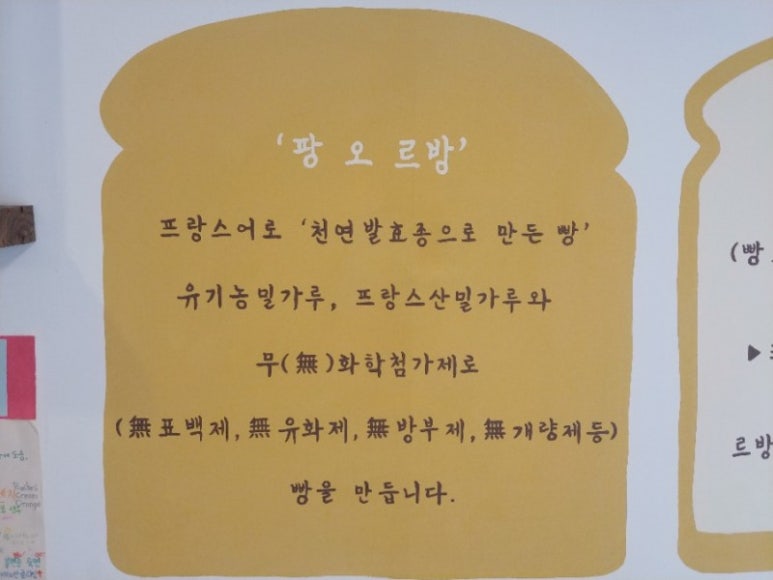 '팡 오 르방'
프랑스어로 '천연발효종으로 만든 빵'
유기농밀가루, 프랑스산밀가루와
무(無)화학첨가제로
(無표백제, 無유화제, 無방부제, 無개량제등)
빵을 만듭니다.
(빵
▶
르방